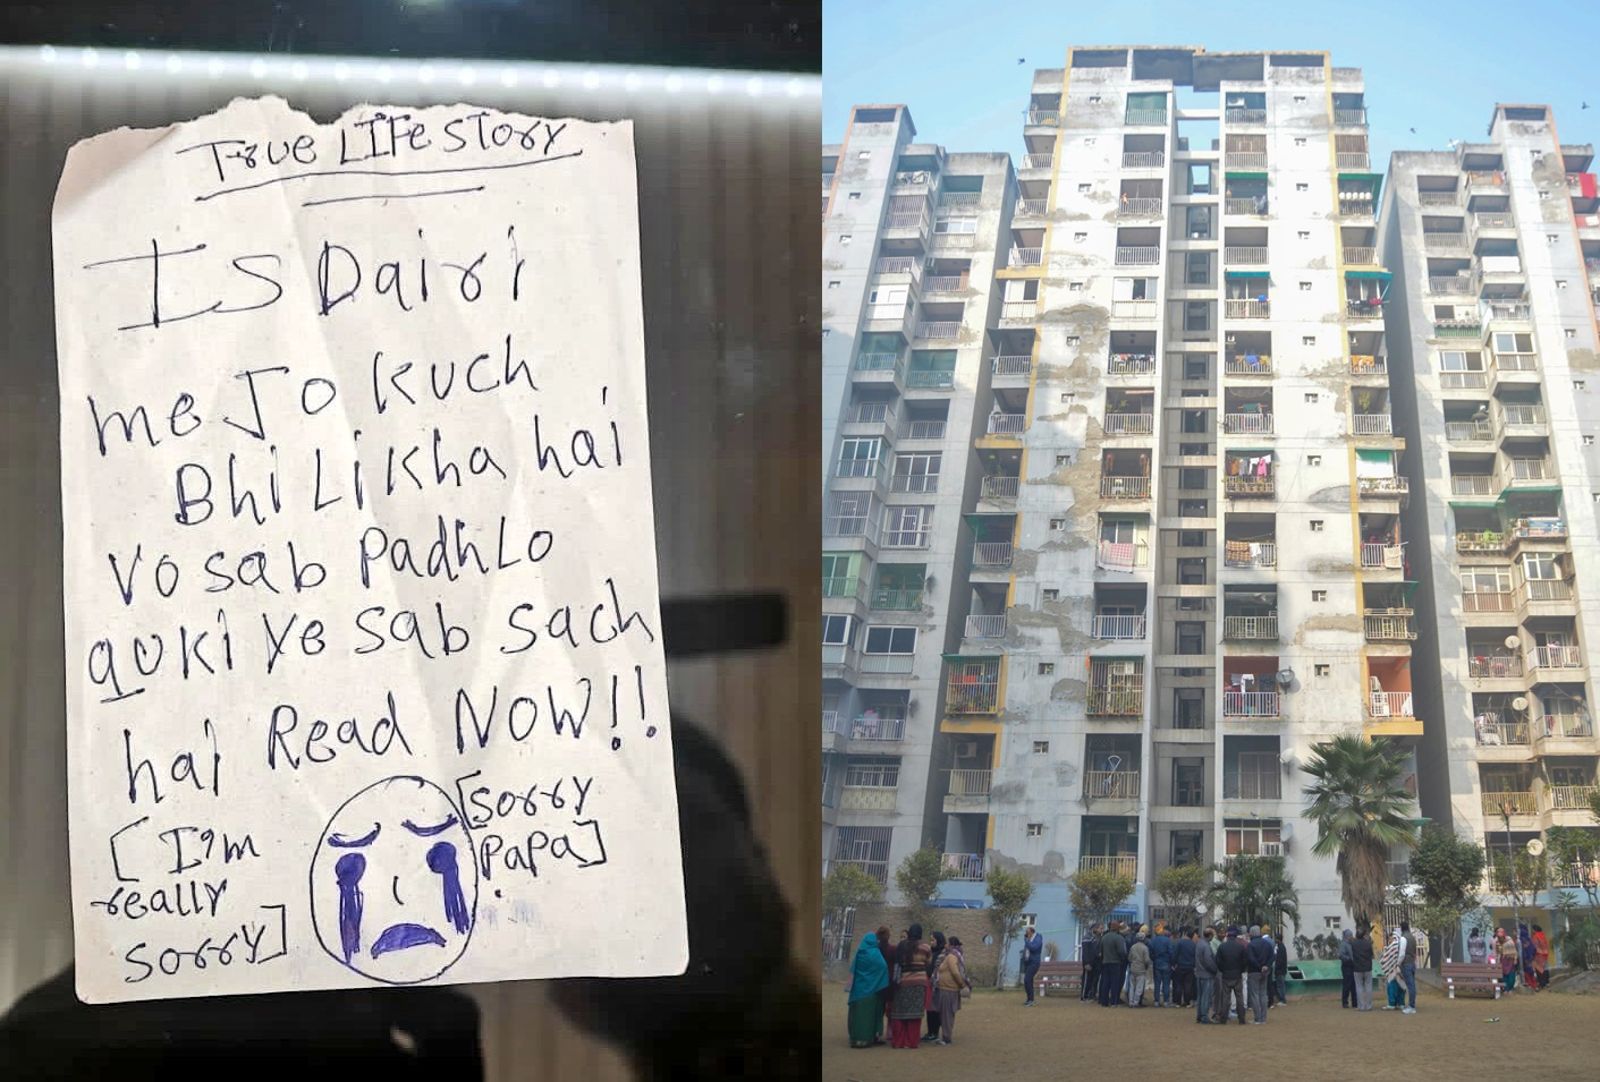 True LIFe Story
Is Dairi
me Jo Kuch
Bhi Likha hai
Vo sab Padh Lo
quki ye sab sach
hai Read NOW!!
[I'm
really
sorry]
[Sorry
PaPa]